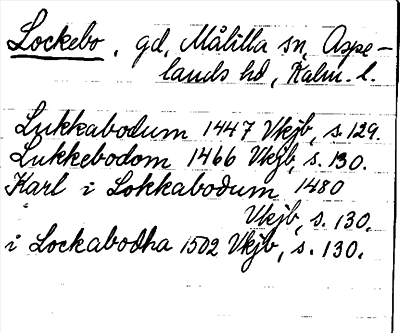 Lockebo, gd, Målilla sn, Aspe-
lands hd, Kalm. l.
Lukkabodum 1447 Vkjb, s. 129.
Lukkebodom 1466 Vkjb, s. 130.
Karl i Lokkabodum 1480
Vkjb, s. 130.
i Lockabodha 1502 Vkjb, s. 130.